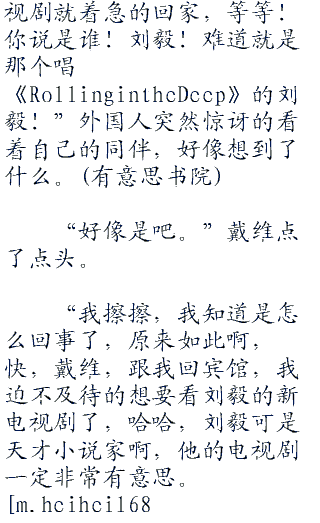 视剧就着急的回家，等等！
你说是谁！刘毅！难道就是
那个唱
《RollinginthcDccp》的刘
毅！”外国人突然惊讶的看
着自己的同伴，好像想到了
什么。(有意思书院)
“好像是吧。”戴维点
了点头。
“我擦擦，我知道是怎
么回事了，原来如此啊，
快，戴维，跟我回宾馆，我
迫不及待的想要看刘毅的新
电视剧了，哈哈，刘毅可是
天才小说家啊，他的电视剧
一定非常有意思。
[m.hcihci168